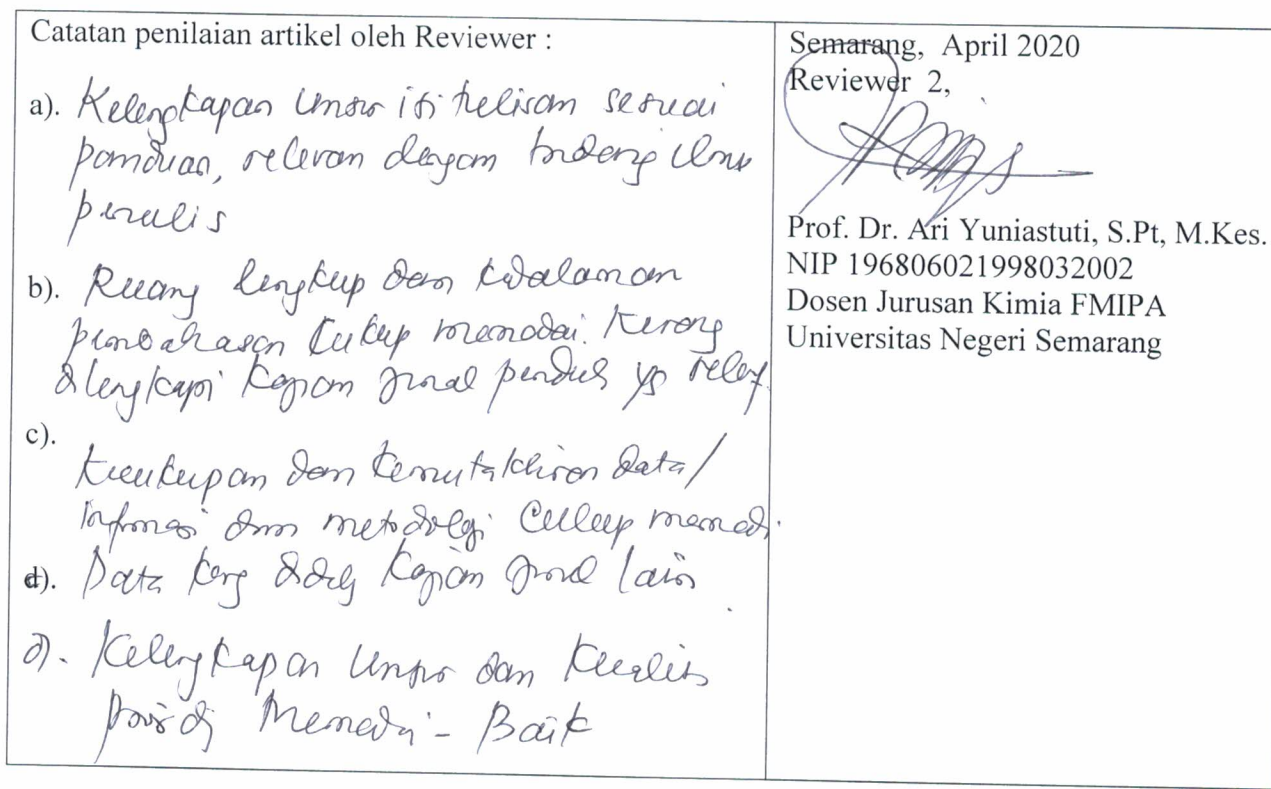 Catatan penilaian artikel oleh Reviewer :
a). Kelengkapan unsur isi tulisan sesuai
panduan, relevan dengan bidang ilmu
penulis
b). Ruang lengkup dan kedalaman
pembahasan cukup memadai. Kurang
dilengkapi kajian jurnal yg
c).
Kecukupan dan kemutakhiran data/
informasi dan metodologi cukup memadai.
d). Data kurang kajian jurnal lain
d). Kelengkapan unsur dan kualitas
Memadai - Baik
Semarang, April 2020
Reviewer 2,
Prof. Dr. Ari Yuniastuti, S.Pt, M.Kes.
NIP 196806021998032002
Dosen Jurusan Kimia FMIPA
Universitas Negeri Semarang